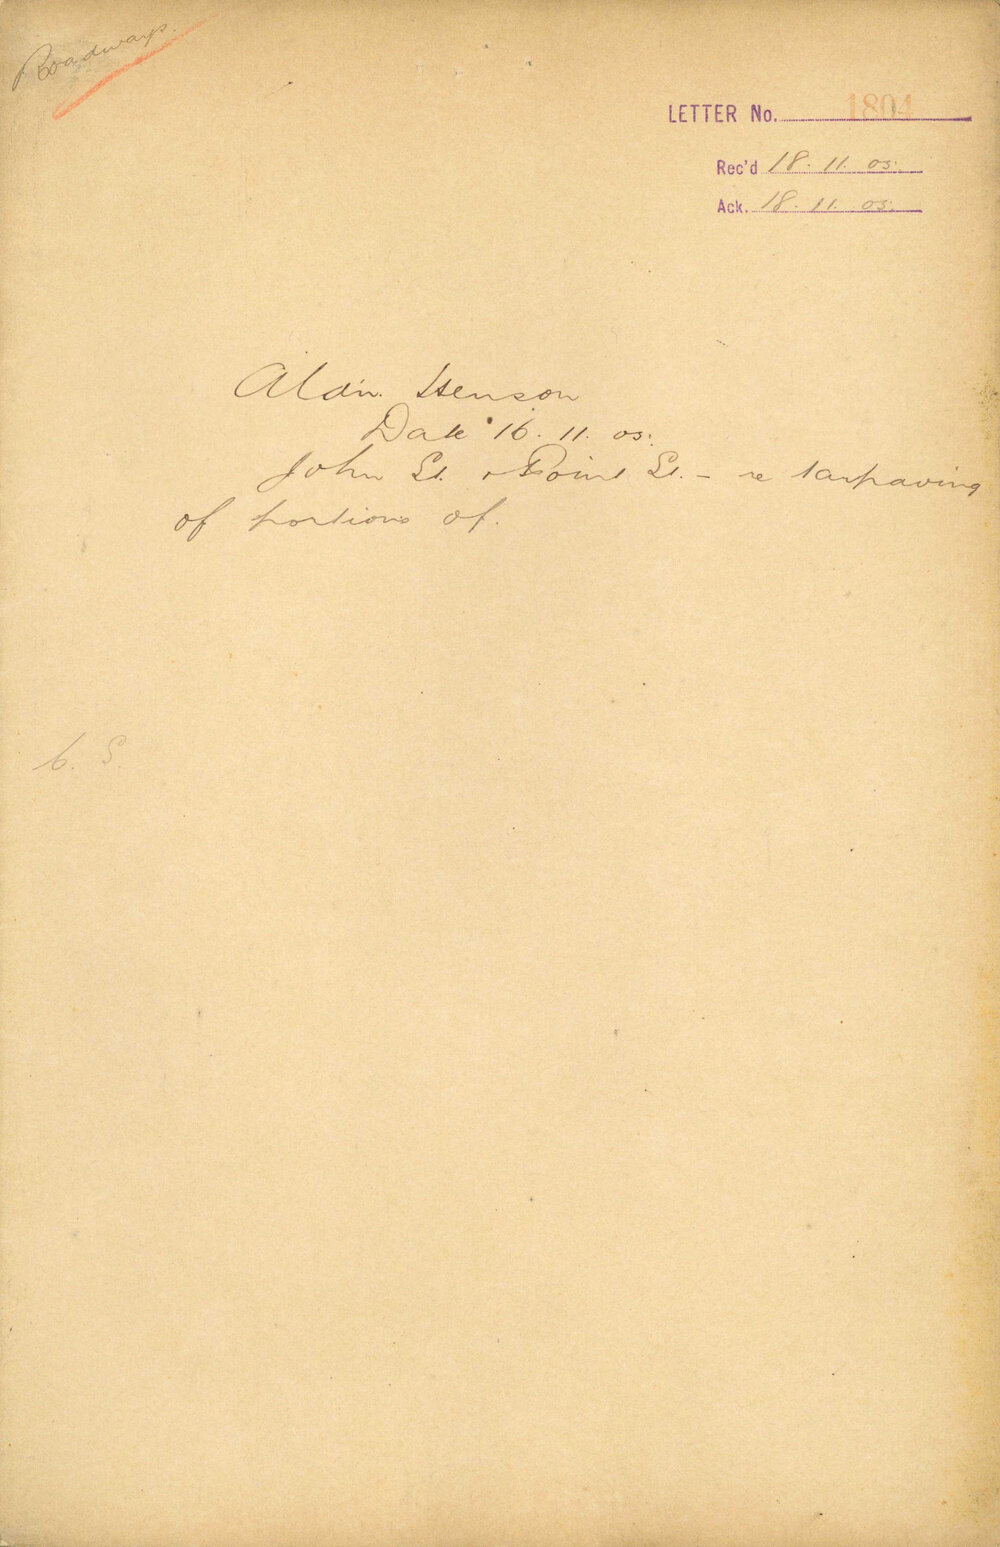 Roadways.
LETTER No. 1804
Rec'd 18. 11. 03.
Ack. 18. 11. 03.
Aldn. Henson
Date 16. 11. 03.
John St. & Point St. - re tarpaving
of portions of.
C. S.